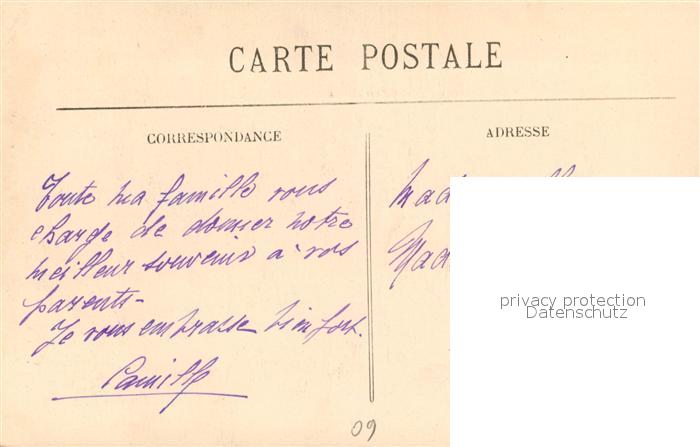 CARTE POSTALE
CORRESPONDANCE
ADRESSE
Toute ma famille vous
charge de donner notre
meilleur souvenir à vos
parents -
Je vous embrasse bien fort.
Camille
privacy protection
Datenschutz
09